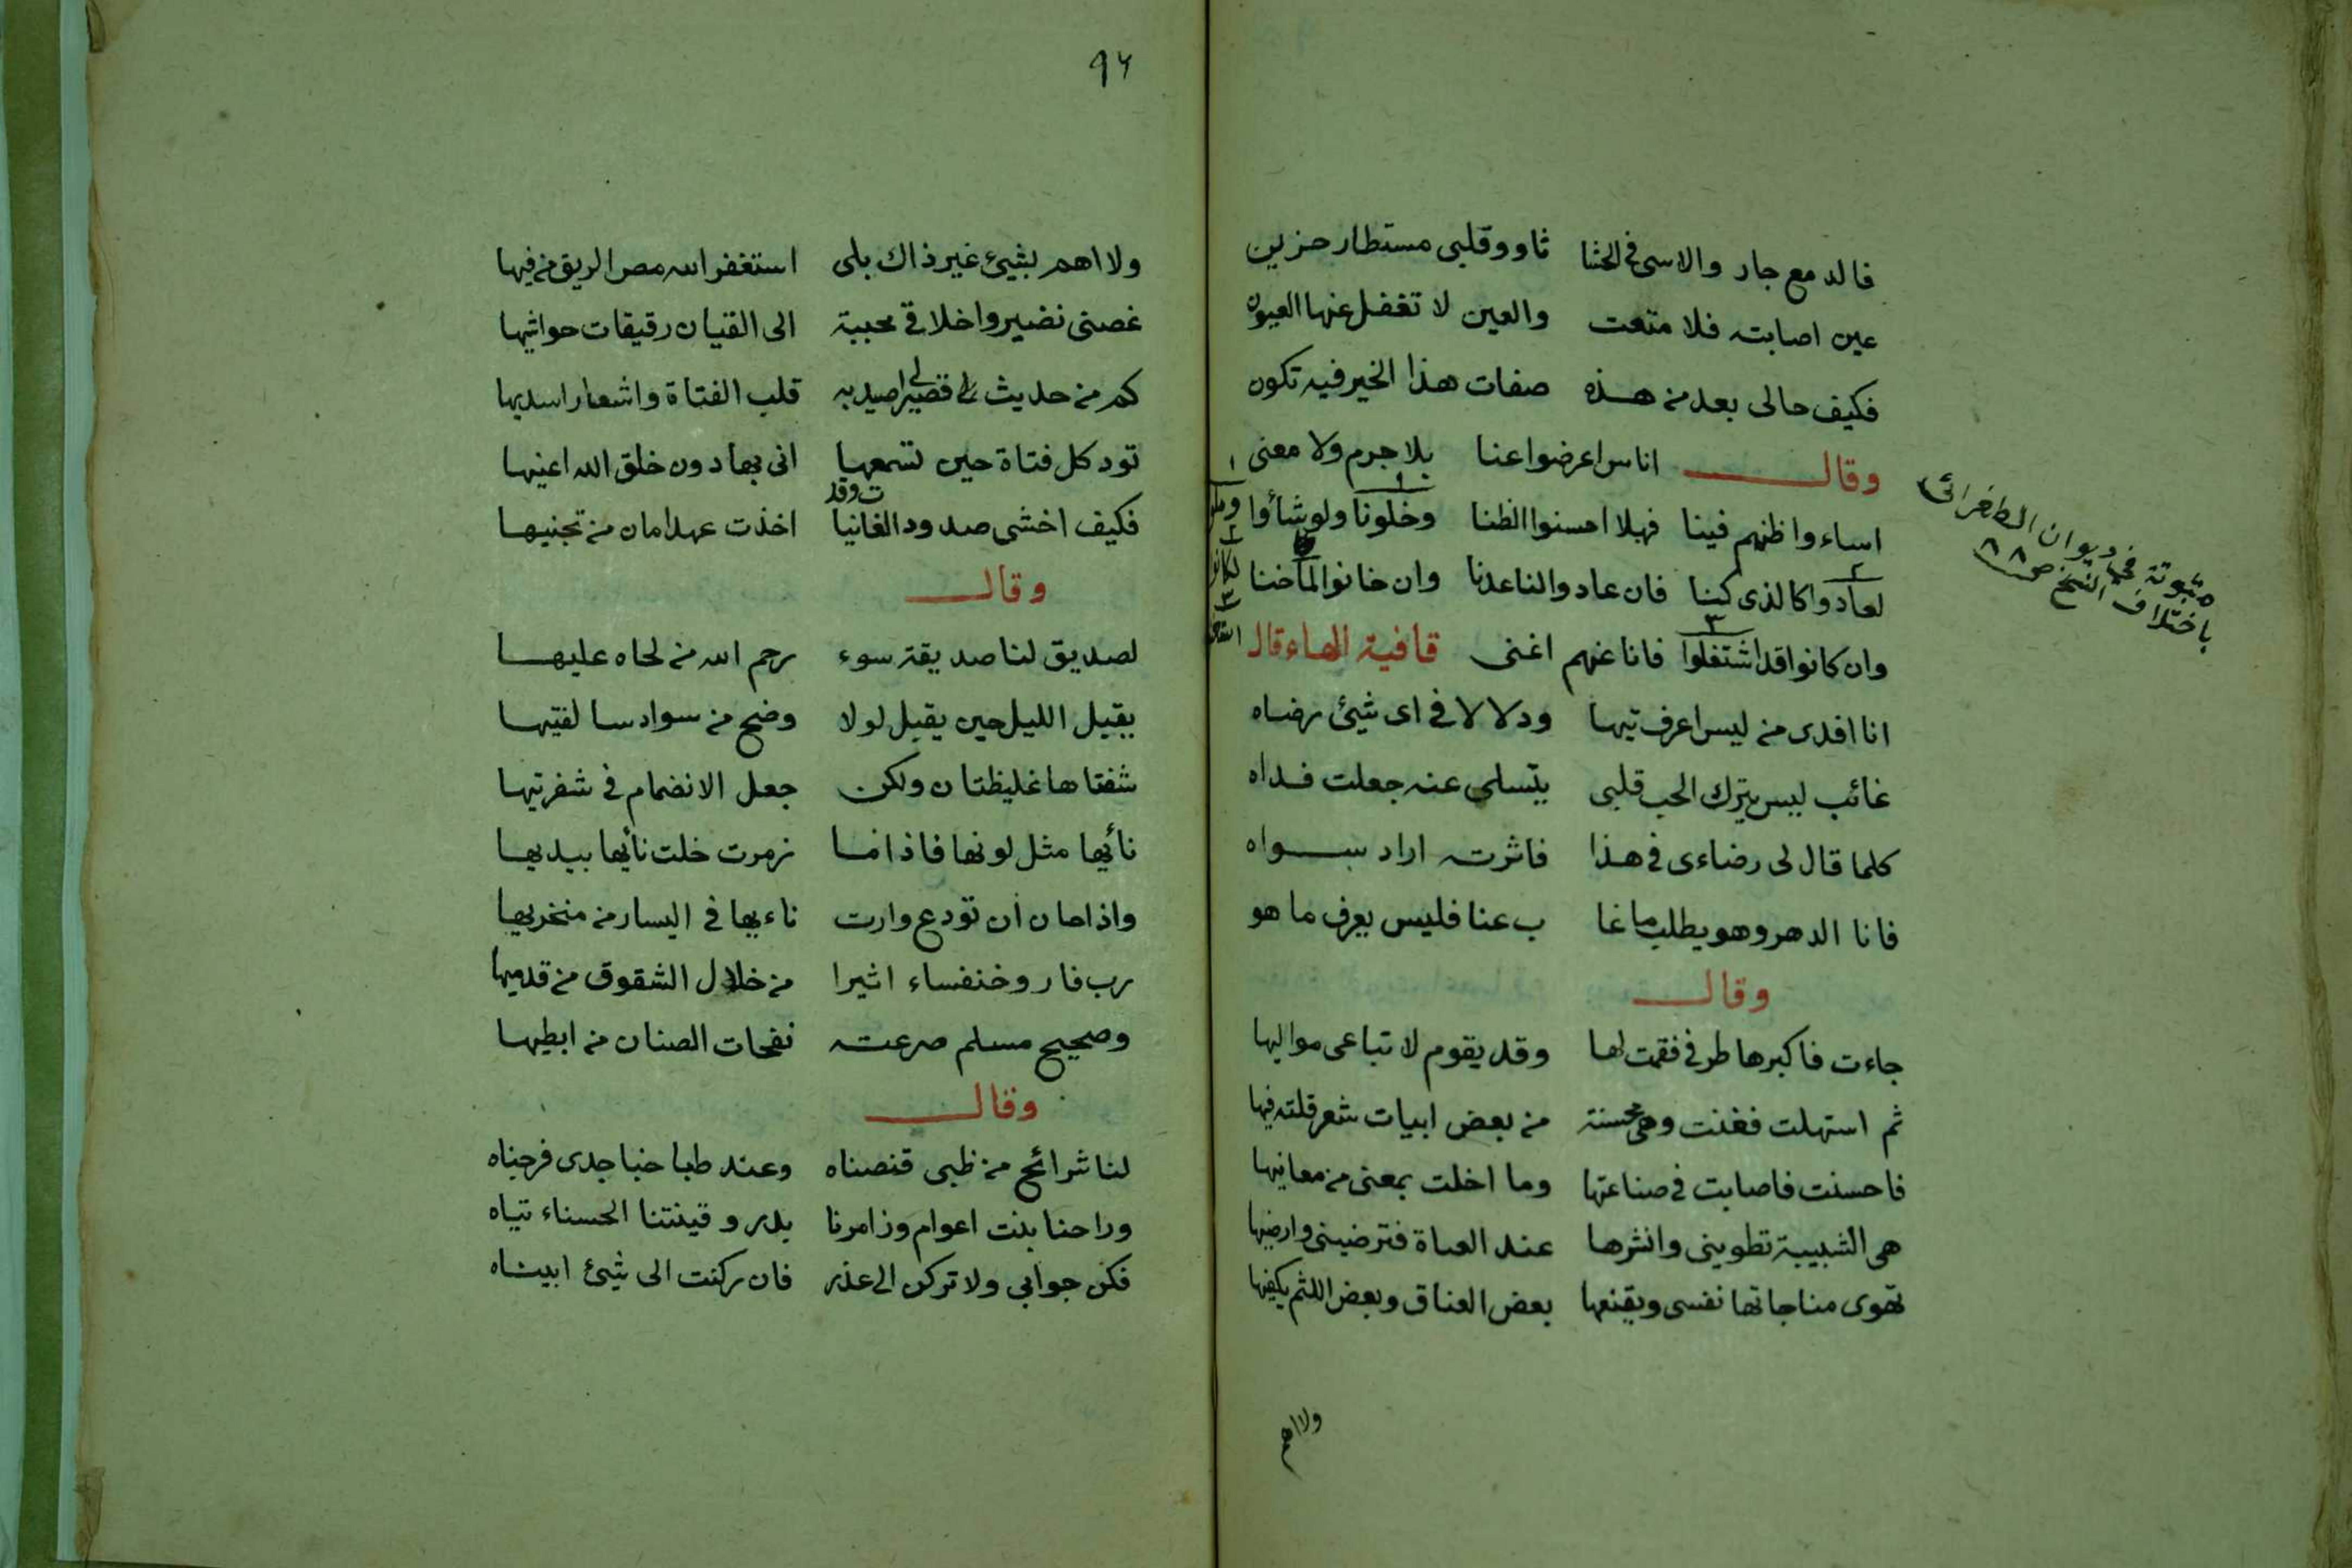 فالدمع جار والاسى في الحشا ثاو وقلبى مستطار حزين
عين اصابته فلا متعت والعين لا تغفل عنها العيون
فكيف حالى بعد من هذه صفات هذا الخير فيه تكون
وقال اناس اعرضوا عنا بلا جرم ولا معنى
اساءوا ظنهم فينا فهلا احسنوا الظنا وخلونا ولو شأوا
لعادوا كالذى كنا فان عادوا لنا عدنا وان خانوا لما خنا
وان كانوا قد اشتغلوا فانا عنهم اغنى قافية الهاء قال
انا افدى من ليس اعرف تيها ودلالا في اى شيئ رضاه
غائب ليس يترك الحب قلبى يتسلى عنه جعلت فداه
كلما قال لى رضاءى في هذا فاثرته اراد سواه
فانا الدهر وهو يطلب ما غا ب عنا فليس يعرف ما هو
وقال
جاءت فاكبرها طرفي فقمت لها وقد يقوم لا تباعى مواليها
ثم استهلت فغنت وهى محسنة من بعض ابيات شعر قلته فيها
فاحسنت فاصابت في صناعتها وما اخلت بمعنى من معانيها
هى الشبيبة تطوينى وانشرها عند الصباة فترضينى وارضيها
تهوى مناجاتها نفسى ويقنعها بعض العناق وبعض اللثم يكفيها
ولا اهم
مثبوتة في ديوان الطغرائى
باختلاف النسخ ص ٨٨
٩٦
ولا اهم بشيئ غير ذاك بلى استغفر الله مص الريق من فيها
غصنى نضير واخلاقى محببة الى القيان رقيقات حواشيها
كم من حديث قصير لى اصيد به قلب الفتاة واشعار اسديها
تود كل فتاة حين تسمعها انى بها دون خلق الله اعنيها
فكيف اخشى صدود الغانيات وقد اخذت عهد امان من تجنيها
وقال
لصديق لنا صديقة سوء رحم الله من لحاه عليها
يقبل الليل حين يقبل لولا وضح من سواد سالفتيها
شفتاها غليظتان ولكن جعل الانضمام في شفرتيها
نأيها مثل لونها فاذا ما زمرت خلت نأيها بيديها
واذا حان أن تودع وارت ناءيها في اليسار من منخريها
رب فار وخنفساء اثيرا من خلال الشقوق من قدميها
وصحيح مسلم صرعته نفحات الصنان من ابطيها
وقال
لنا شرائح من ظبى قنصناه وعند طباخنا جدى فرجناه
وراحنا بنت اعوام وزامرنا بدر وقينتنا الحسناء تياه
فكن جوابي ولا تركن الى عذر فان ركنت الى شيئ ابيناه